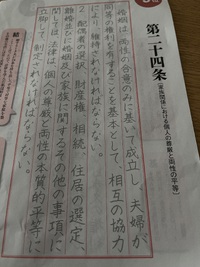 第二十四条
〔家族関係における個人の尊厳と両性の平等〕
婚姻は、両性の合意のみに基いて成立し、夫婦が
同等の権利を有することを基本として、相互の協力
により、維持されなければならない。
2 配偶者の選択、財産権、相続、住居の選定、
離婚並びに婚姻及び家族に関するその他の事項に
関しては、法律は、個人の尊厳と両性の本質的平等に
立脚して、制定されなければならない。